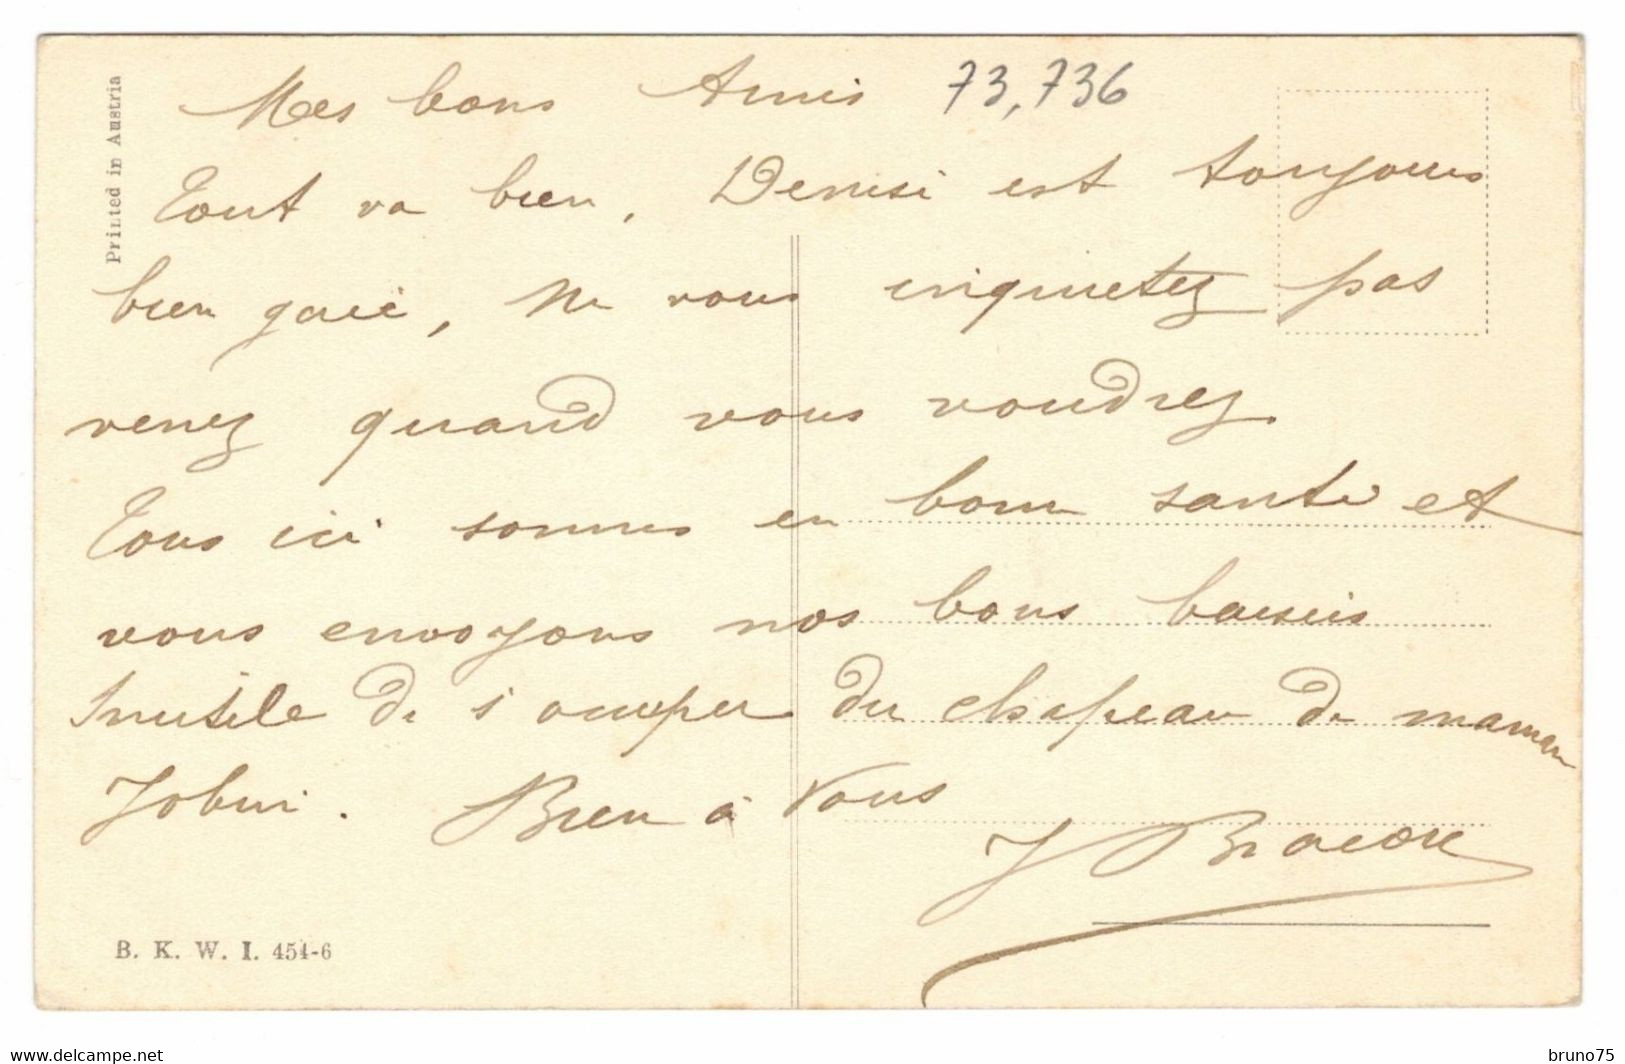 Mes bons Amis 73,736
Tout va bien, Denise est toujours
bien gaie, Ne vous inquietez pas
venez quand vous voudrez
Tous ici sommes en bonne santé et
vous envoyons nos bons baisers
Inutile de s'occuper du chapeau de maman
Bien à Vous
J
Printed in Austria
B. K. W. I. 454-6
www.delcampe.net
bruno75